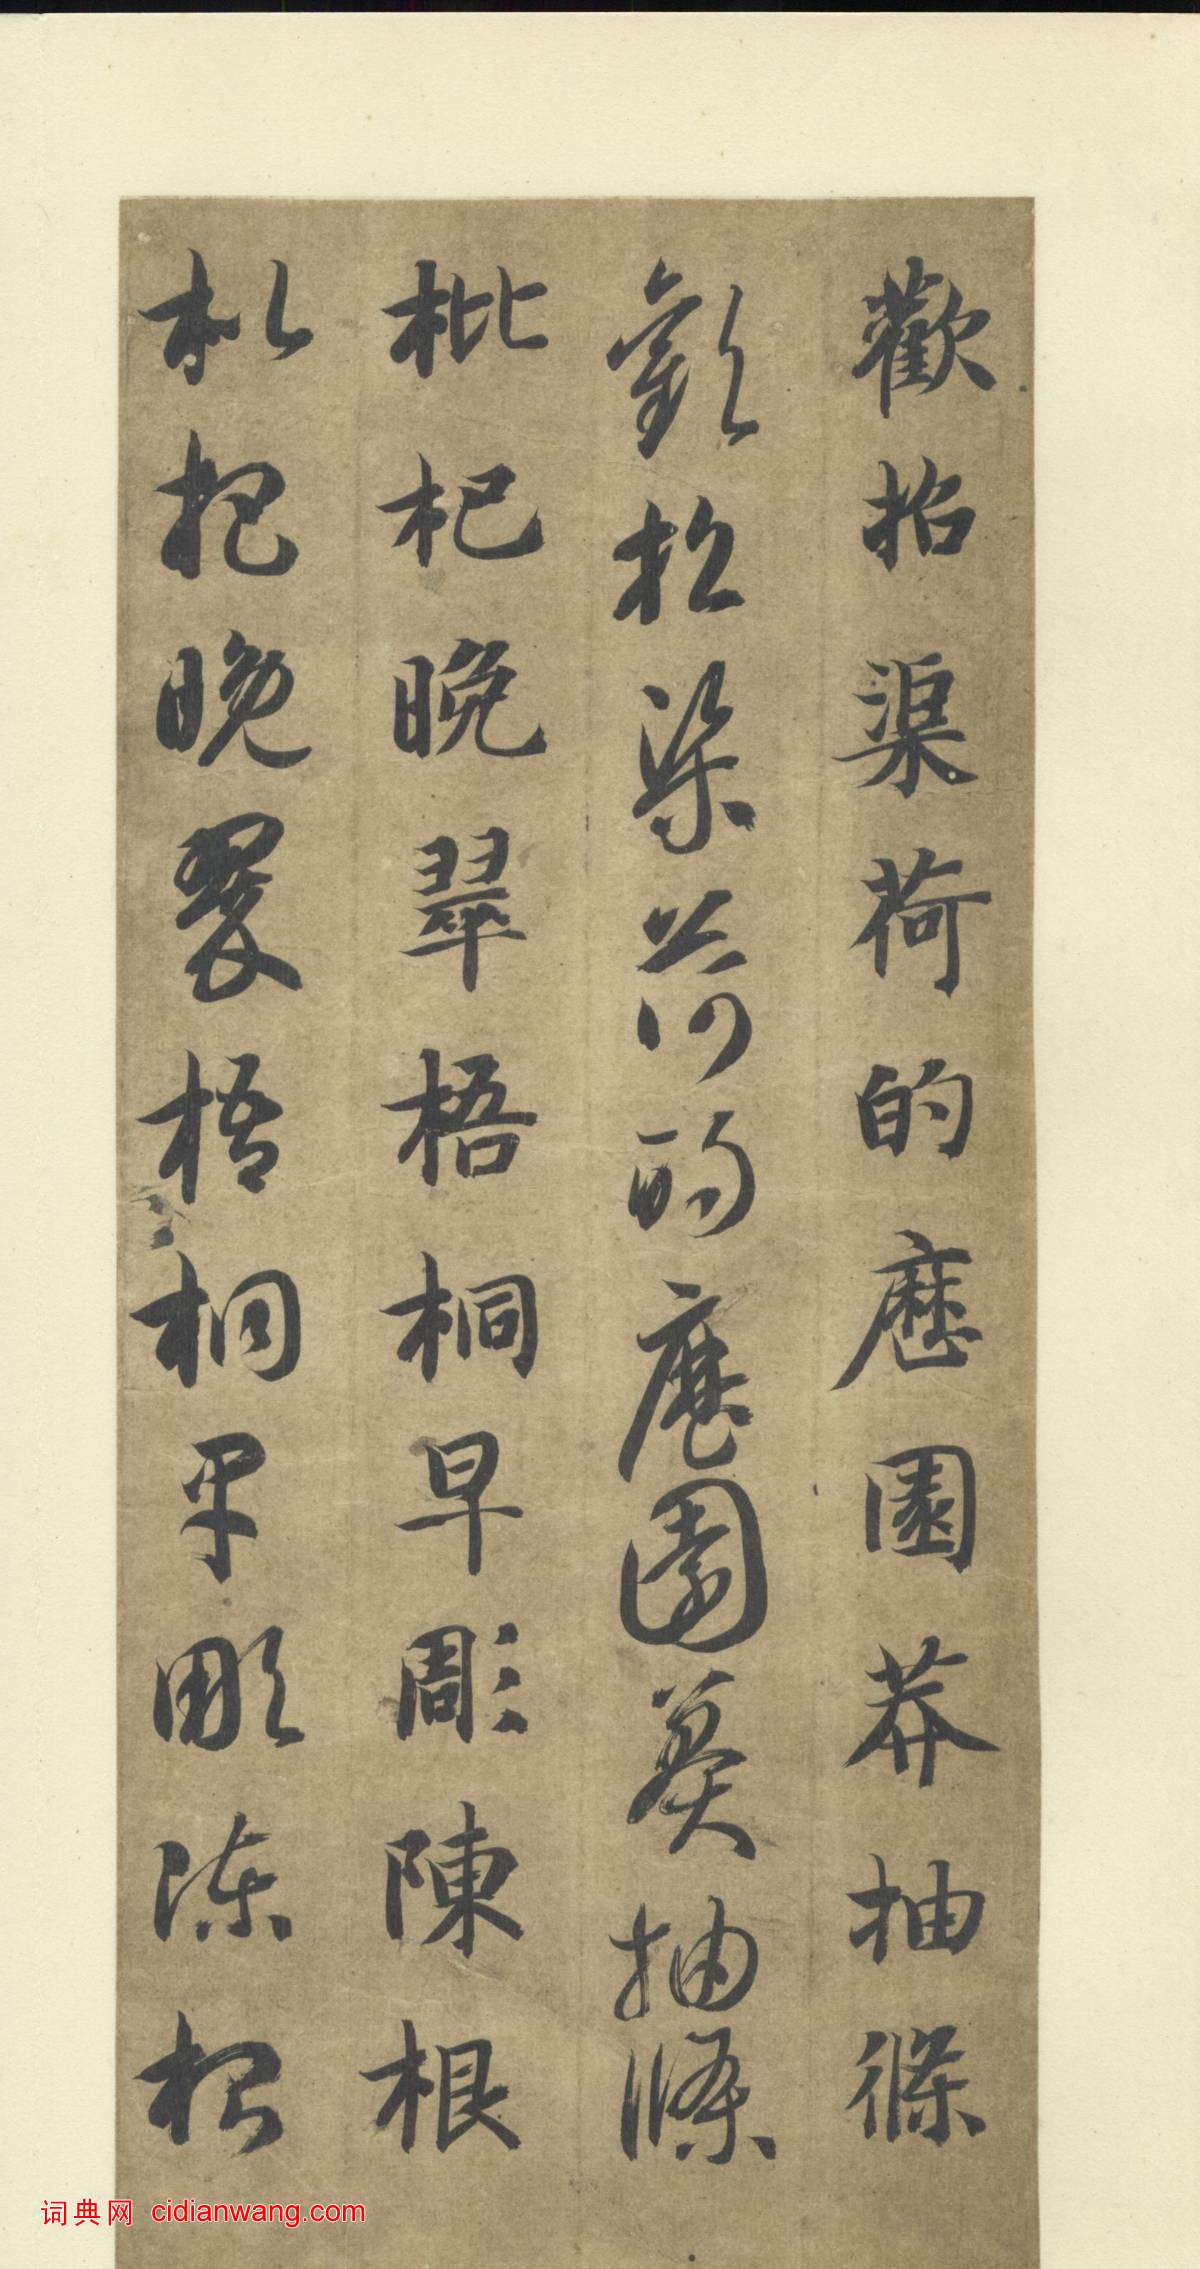 歡招渠荷的歷園莽抽條
歡招渠荷的歷園莽抽條
枇杷晚翠梧桐早彫陳根
枇杷晚翠梧桐早彫陳根
词典网 cidianwang.com